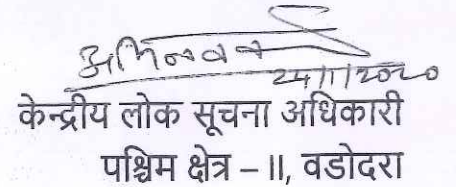 अभिनव
24/11/2020
केन्द्रीय लोक सूचना अधिकारी
पश्चिम क्षेत्र – II, वडोदरा